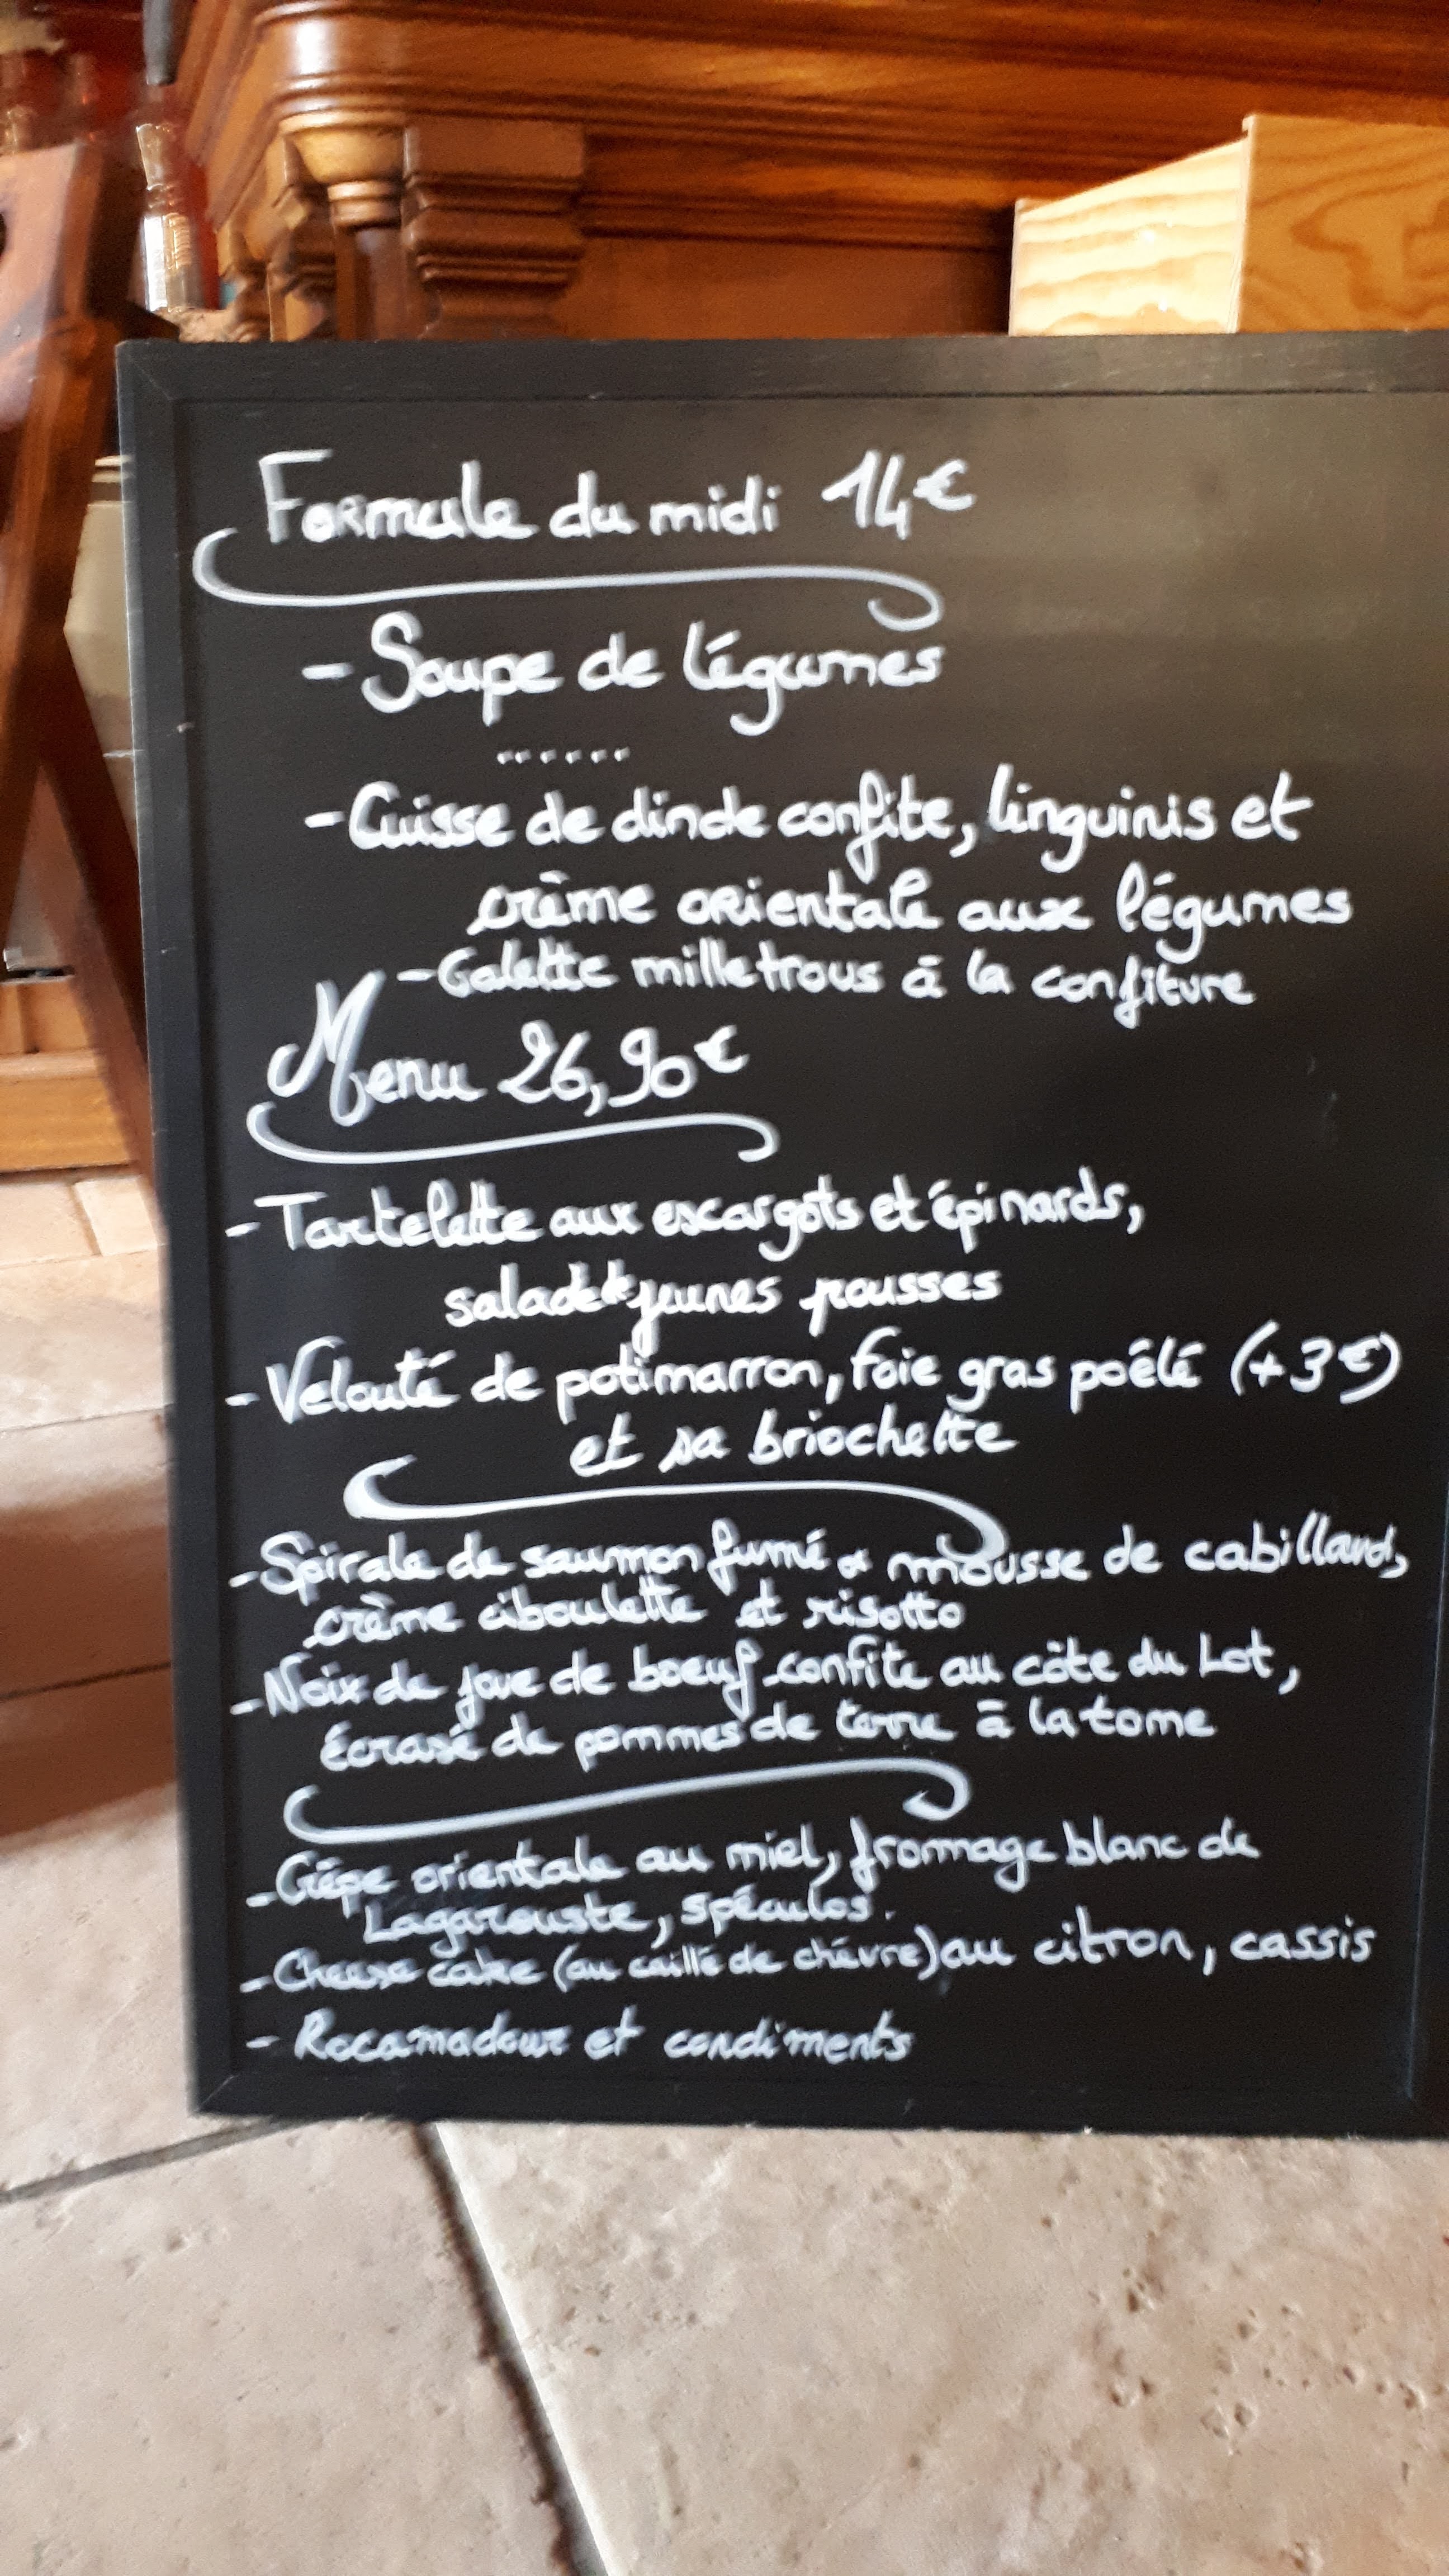 Formule du midi 14€
- Soupe de légumes
......
- Cuisse de dinde confite, linguinis et
crème orientale aux légumes
- Galette mille trous à la confiture
Menu 26,90€
- Tartelette aux escargots et épinards,
salade de jeunes pousses
- Velouté de potimarron, foie gras poêlé (+3€)
et sa briochette
- Spirale de saumon fumé & mousse de cabillaud,
crème ciboulette et risotto
- Noix de joue de boeuf confite au côte du Lot,
écrasé de pommes de terre à la tome
- Crêpe orientale au miel, fromage blanc de
Lagarouste, spéculos.
- Cheese cake (au caillé de chèvre) au citron, cassis
- Rocamadour et condiments